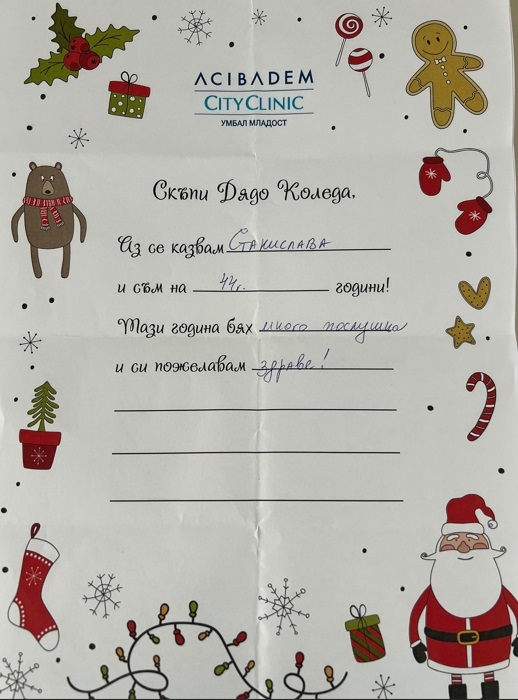 ACIBADEM
CITYCLINIC
УМБАЛ МЛАДОСТ
Скъпи Дядо Коледа,
Аз се казвам Станислава
и съм на 44г. години!
Тази година бях много послушна
и си пожелавам здраве!